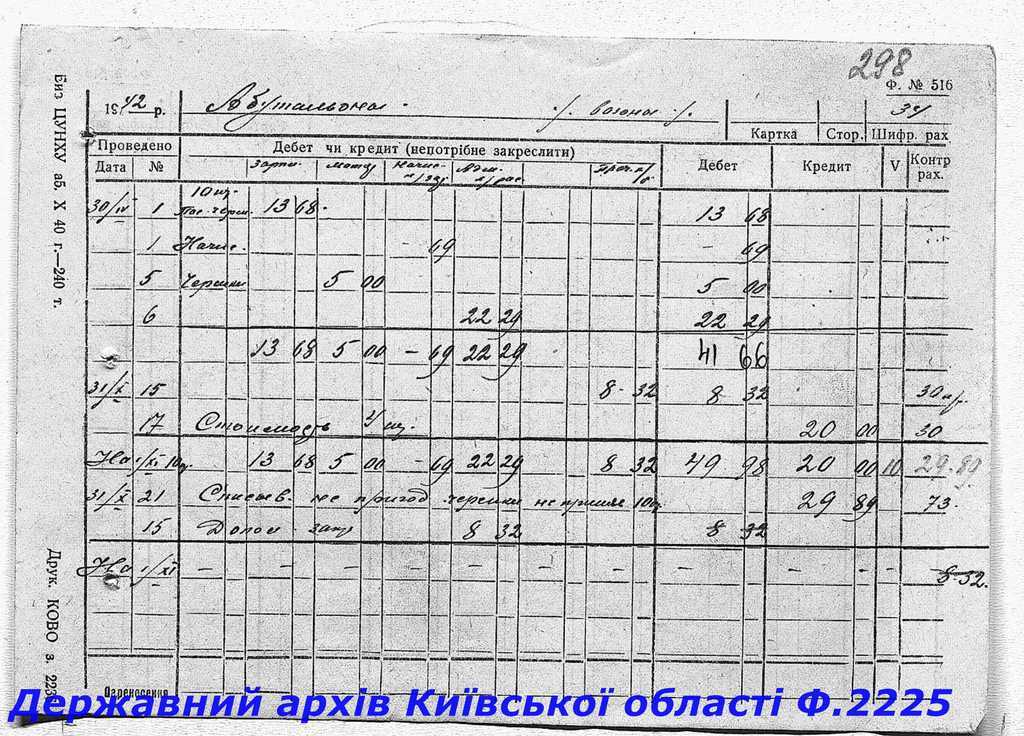 298
Ф. № 516
1942 р.
34
Картка Стор. Шифр. рах
Проведено Дебет чи кредит (непотрібне закреслити) Дебет Кредит V Контр рах.
Дата №
10 шт.
30/IV 1 13 68 13 68
1 Начис. - 69 - 69
5 Черенки 5 00 5 00
6 22 29 22 29
13 68 5 00 - 69 22 29 41 66
31/X 15 8 32 8 32 30
17 Стоимость 4 шт. 20 00 30
На 1/XI 10 13 68 5 00 - 69 22 29 8 32 49 98 20 00 10 29.89
31/X 21 не пригод черенки 29 89 73
15 8 32 8 32
На 1/XI - - - - - - - - - - 8-32.
Биз ЦУНХУ аб. X 40 г.—240 т.
Друк. КОВО з. 223
Перенесення
Державний архів Київської області Ф.2225